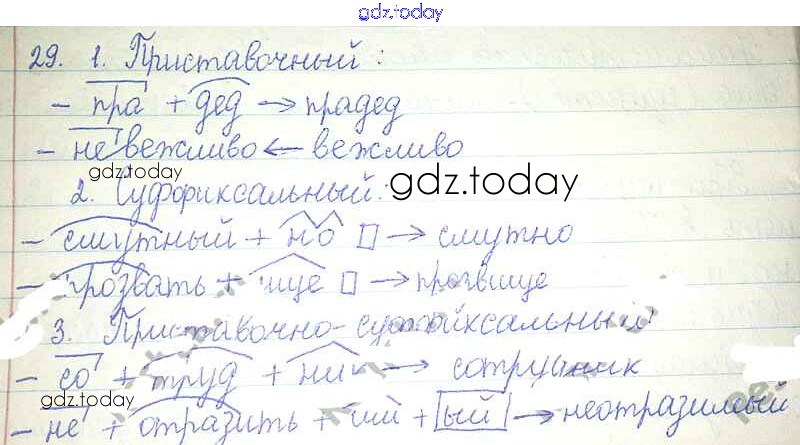 gdz.today
29. 1. Приставочный:
- пра + дед → прадед
- невежливо ← вежливо
gdz.today
2. Суффиксальный: gdz.today
- смутный + но □ → смутно
- прозвать + ище □ → прозвище
3. Приставочно-суффиксальный:
- со + труд + ник → сотрудник
gdz.today
- не + отразить + им + ый → неотразимый